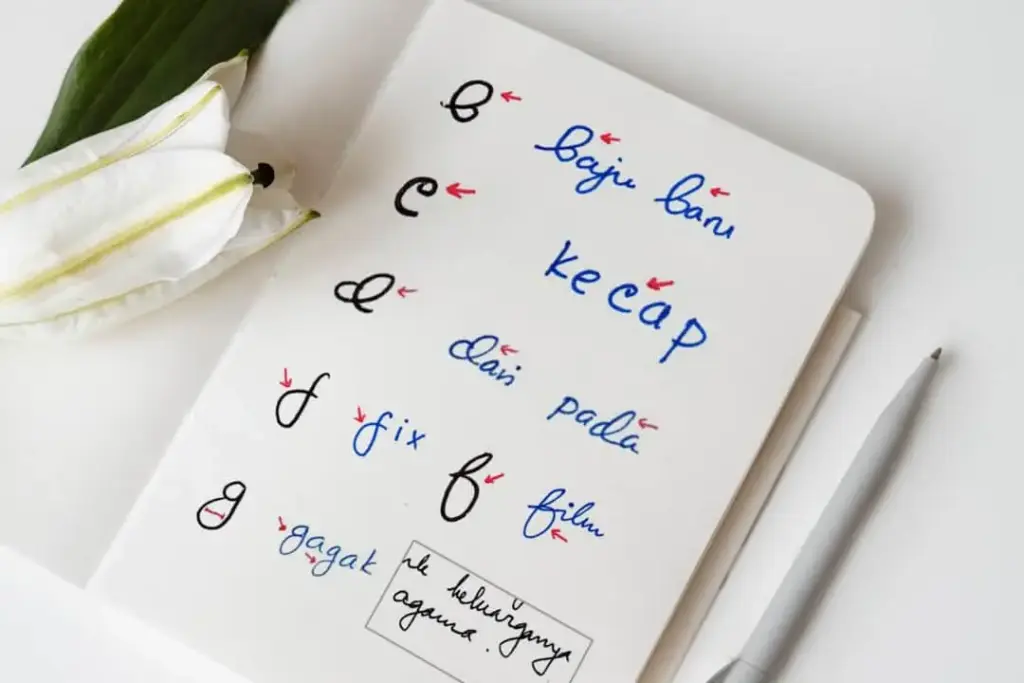 b
baju baru
c
kecap
d
dari pada
f fix
f film
g gagak
keluarganya
agama.